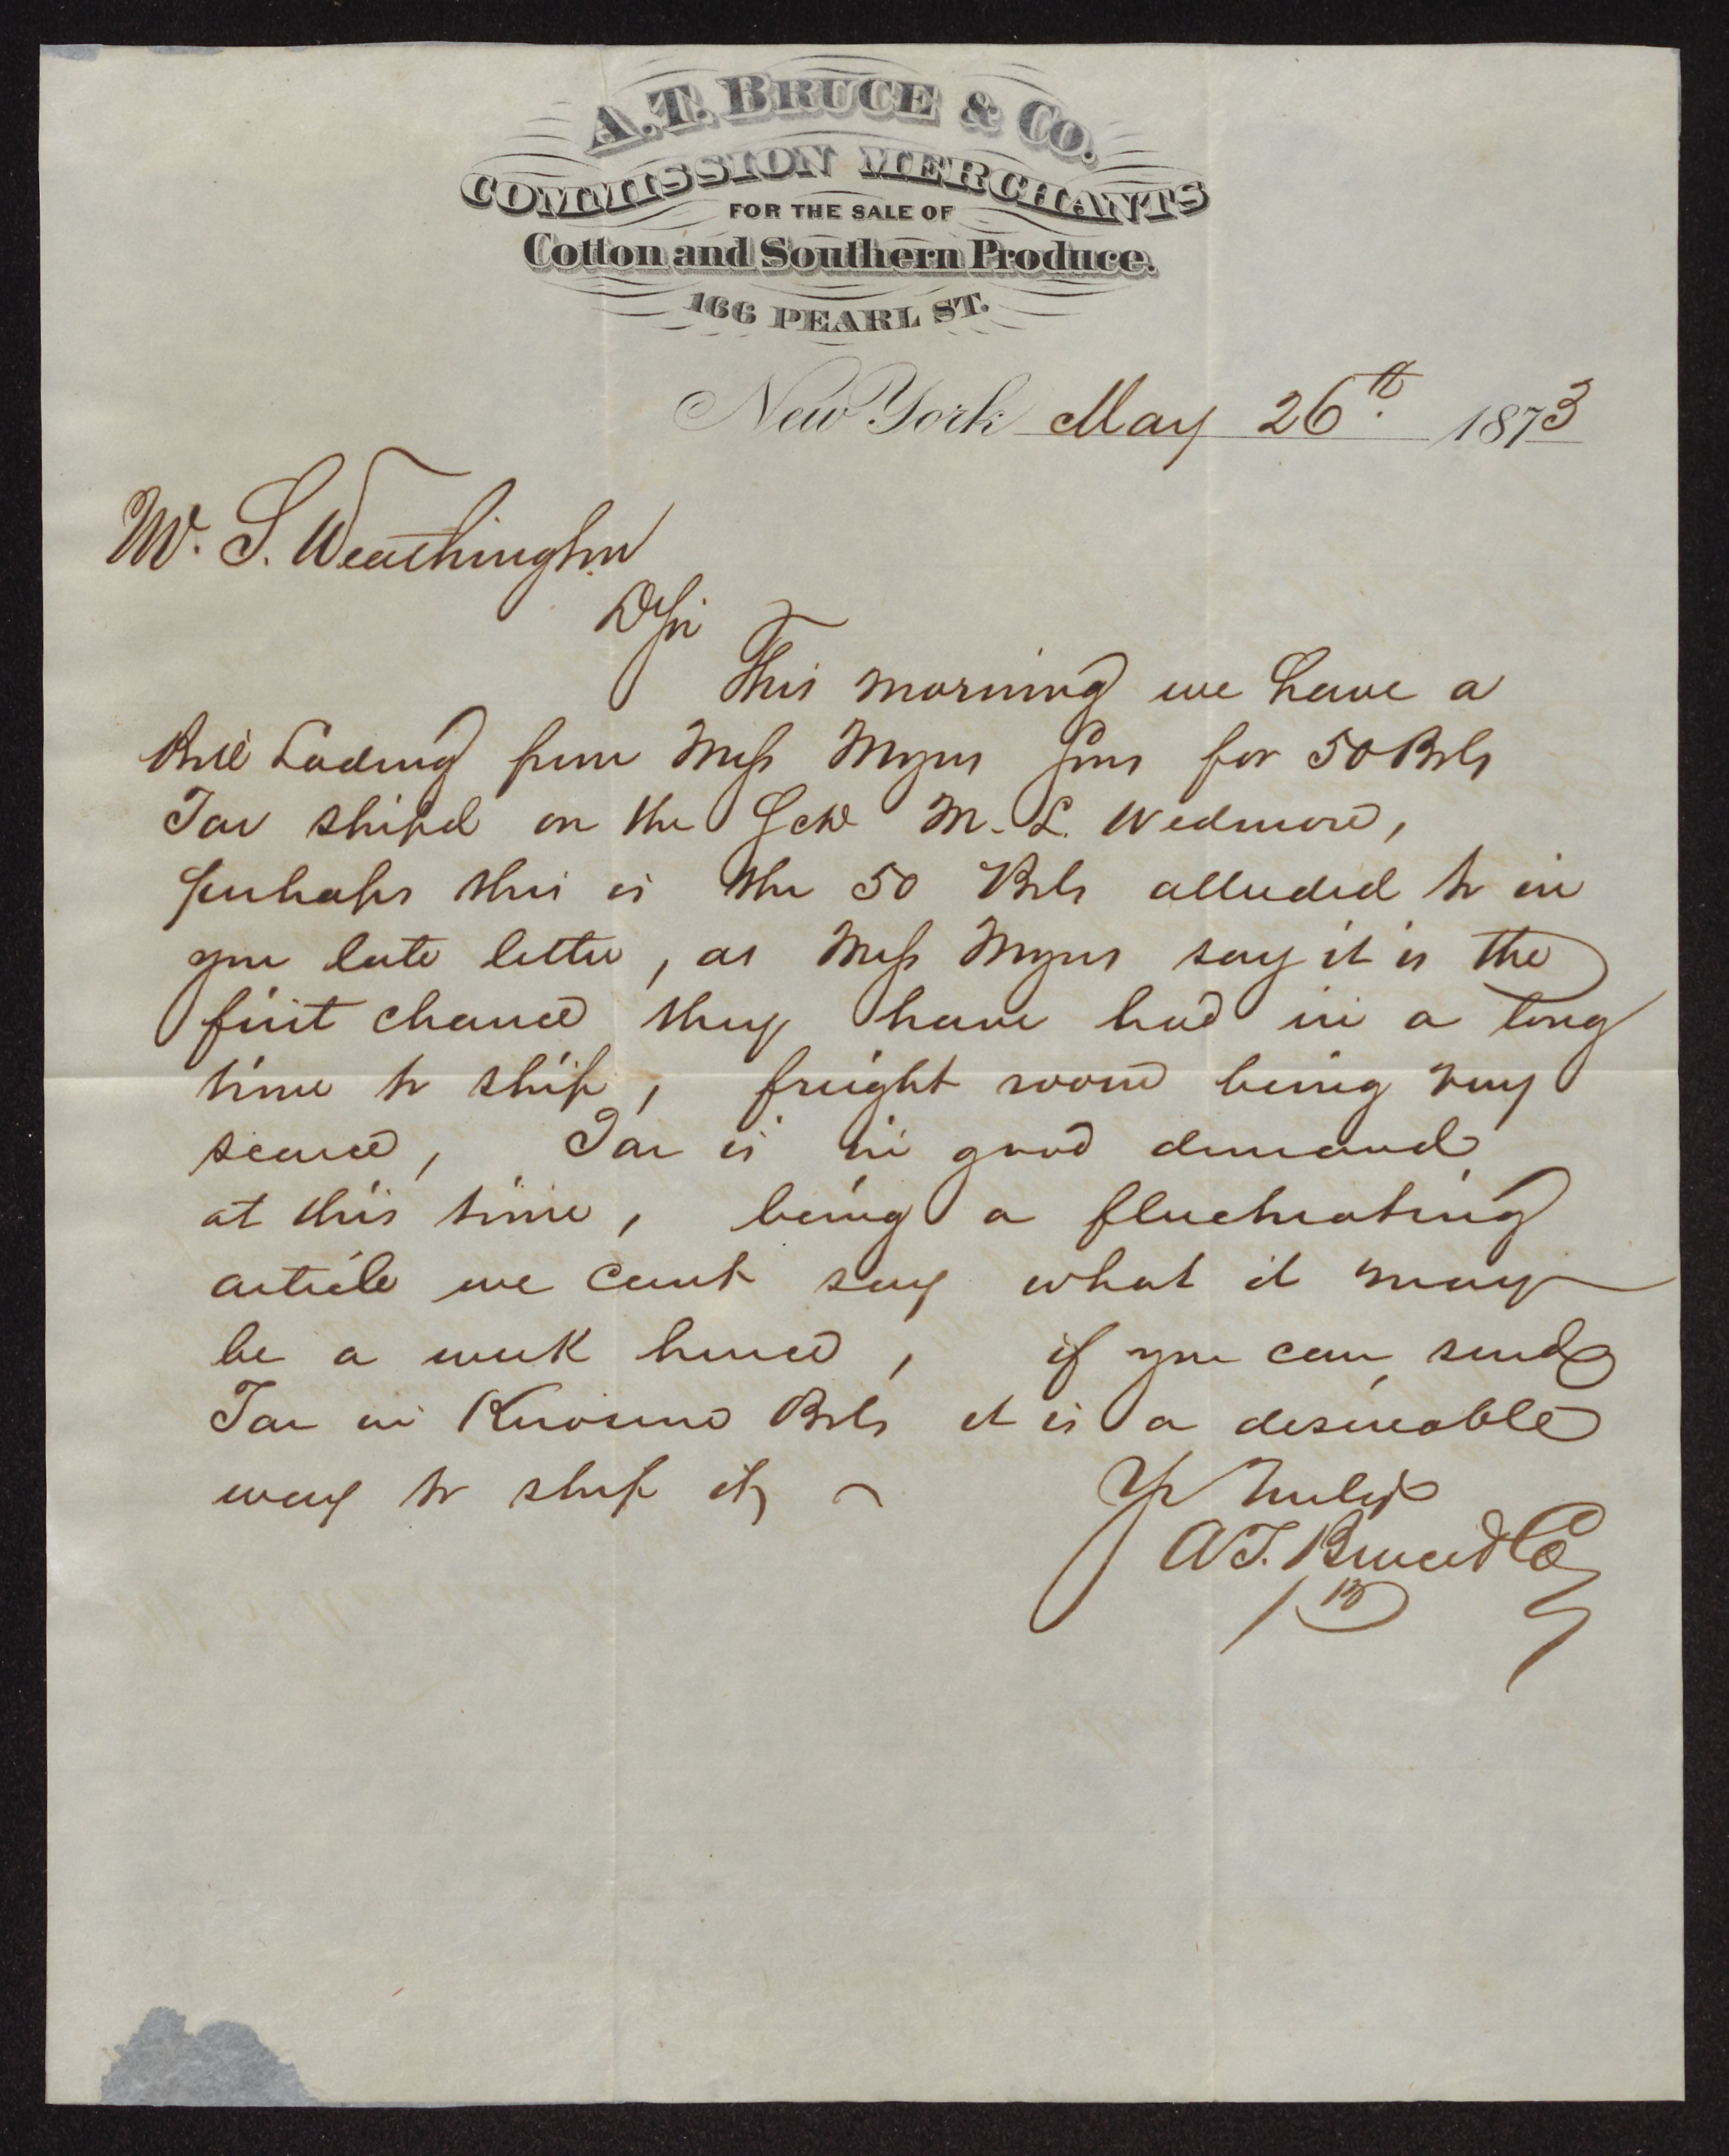 A.T. BRUCE & CO.
COMMISSION MERCHANTS
FOR THE SALE OF
Cotton and Southern Produce.
166 PEARL ST.
New York May 26th. 1873
W. S. Weathington
D Sir
This morning we have a
Bill Lading from Mess Myers Sons for 50 Brls
Tar shipd on the Schr M. L. Wedmore,
perhaps this is the 50 Brls alluded to in
your late letter, as Mess Myers say it is the
first chance they have had in a long
time to ship, freight room being very
scarce, Tar is in good demand
at this time, being a fluctuating
article we cant say what it may
be a week hence, if you can send
Tar in Kerosene Brls it is a desireable
way to ship it,
Yr Truly
A T. Bruce & Co